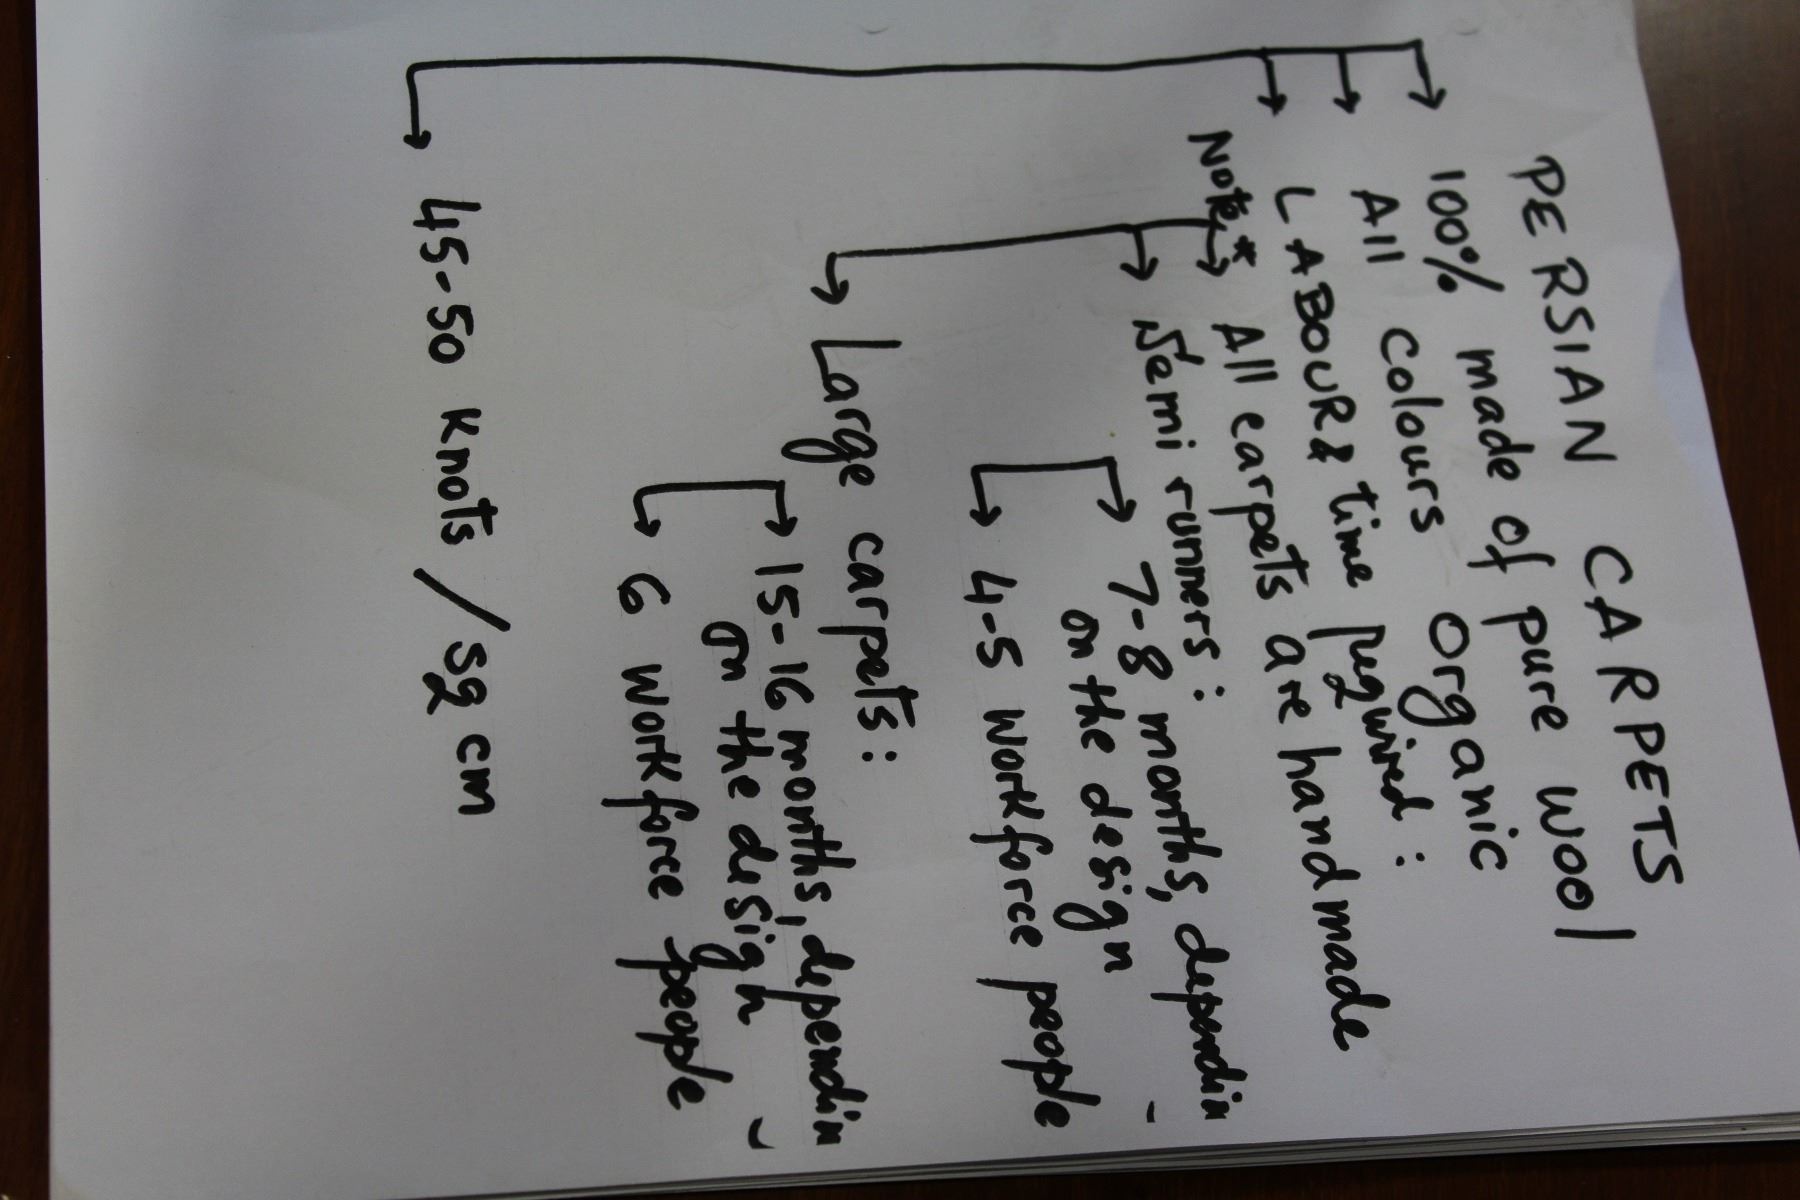 PERSIAN CARPETS
100% made of pure wool
All colours organic
LABOUR & time required:
Note* All carpets are handmade
Semi runners:
7-8 months, dependin
on the design
4-5 workforce people
Large carpets:
15-16 months, dependin
on the design
6 workforce people
45-50 knots / sq cm